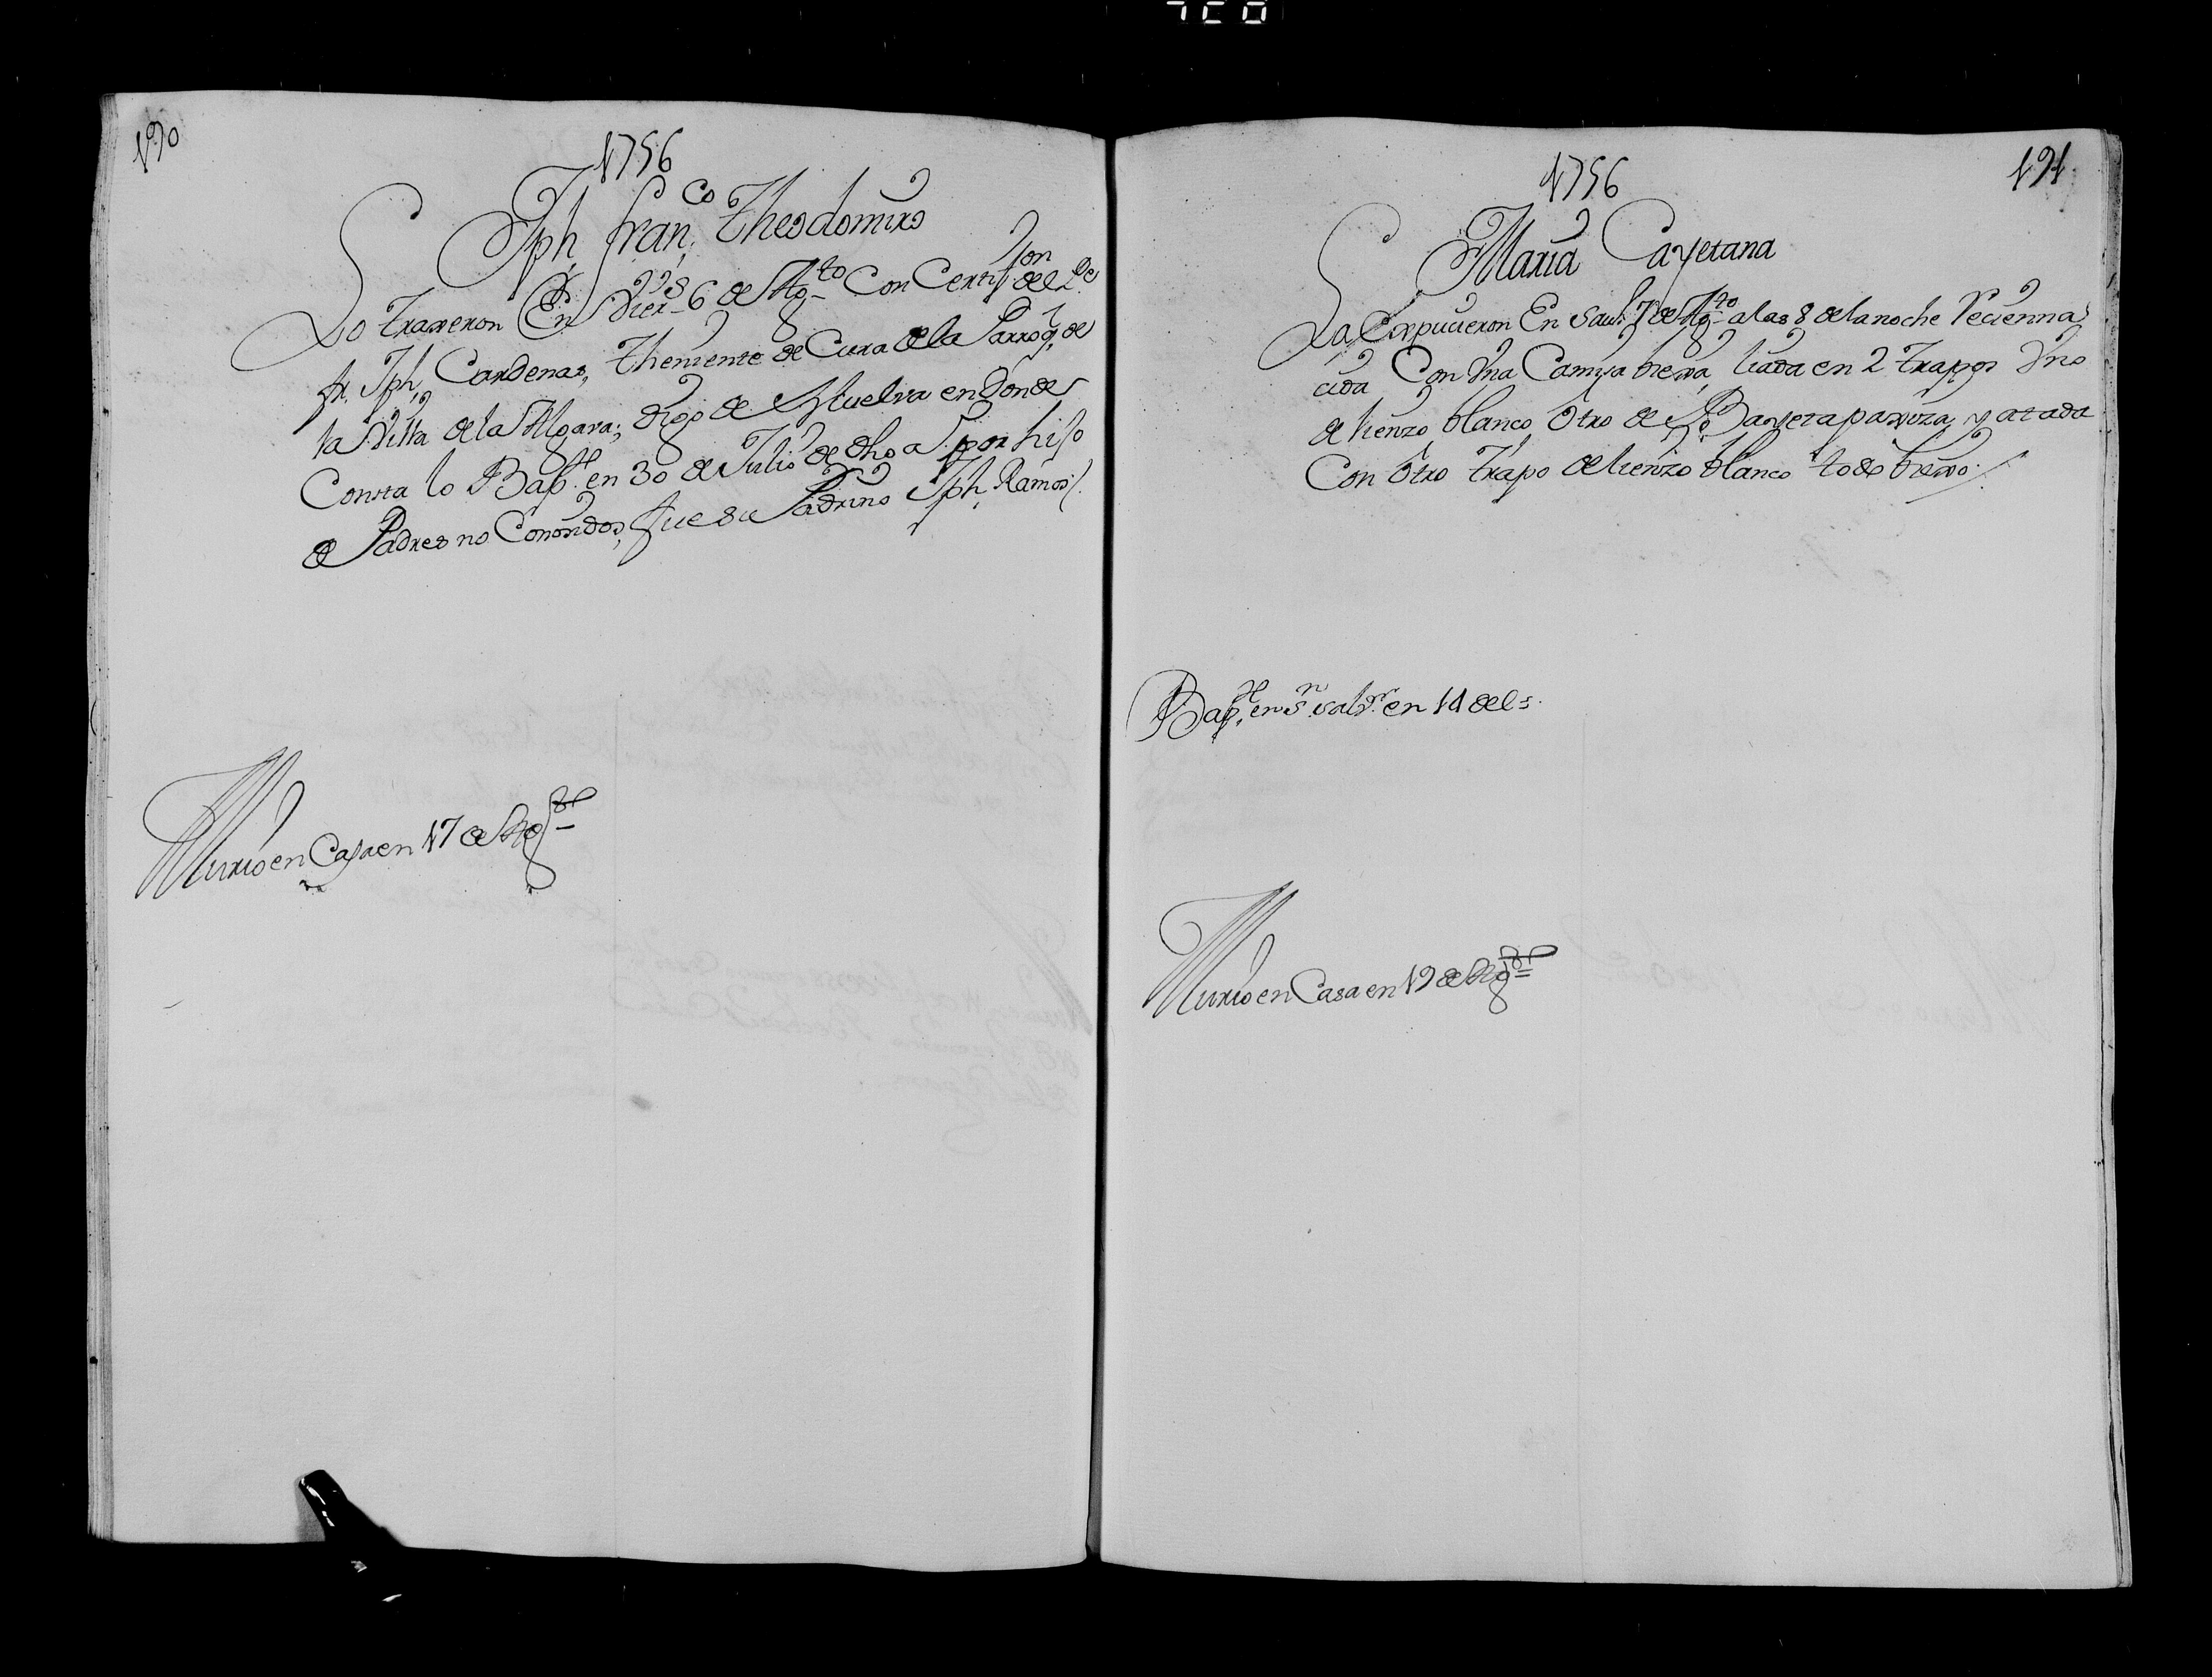 190
1756
Jph, fran,co Theodomiro
Lo traxeron En Vier.s 6 de Ag.to Con Certif.on del P.e
fr. Jph, Cardenas, Theniente de Cura de la Parroq, de
la Villa de la Algava; digo de Huelva en donde
Consta lo Bap.e en 30 de Julio de dho a. por hijo
de Padres no Conosidos, fue su Padrino Jph, Ramos/.
Murio en Casa en 17 de Ag.to
191
1756
Maria Cayetana
La Expucieron En Sau.o 7 de Ag.to a las 8 de la noche Recienna
cida Con Vna Camisa biexa, liada en 2 trapos Vno
de lienzo blanco Otro de Bayeta parda y atada
Con Otro trapo de lienzo blanco todo biexo./.
Bap,e en S.n Salv.r en 11 del s.
Murio en Casa en 19 de Ag.to